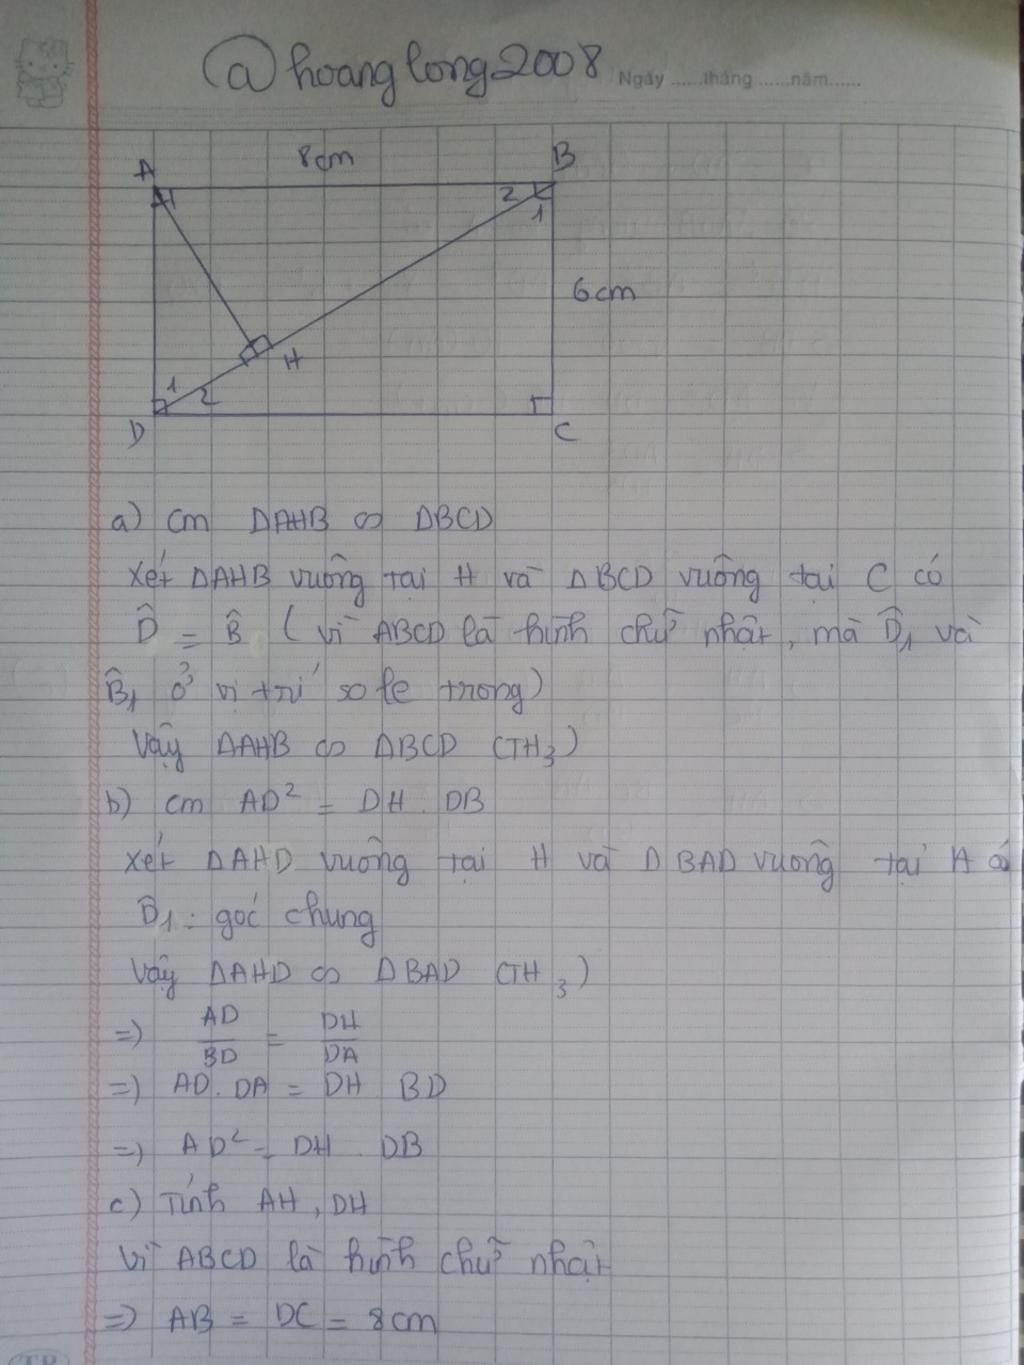 @hoanglong2008
Ngày ......tháng ......năm......
8cm
A
B
2
1
6cm
H
1
2
D
C
a) cm ΔAHB ∽ ΔBCD
Xét ΔAHB vuông tại H và ΔBCD vuông tại C có
D̂ = B̂ ( vì ABCD là hình chữ nhật, mà D̂₁ và
B̂₁ ở vị trí so le trong)
Vậy ΔAHB ∽ ΔBCD (TH₃)
b) cm AD² = DH . DB
Xét ΔAHD vuông tại H và ΔBAD vuông tại A có
D̂₁ : góc chung
Vậy ΔAHD ∽ ΔBAD (TH₃)
=> AD/BD = DH/DA
=> AD . DA = DH BD
=> AD² = DH . DB
c) Tính AH, DH
Vì ABCD là hình chữ nhật
=> AB = DC = 8cm